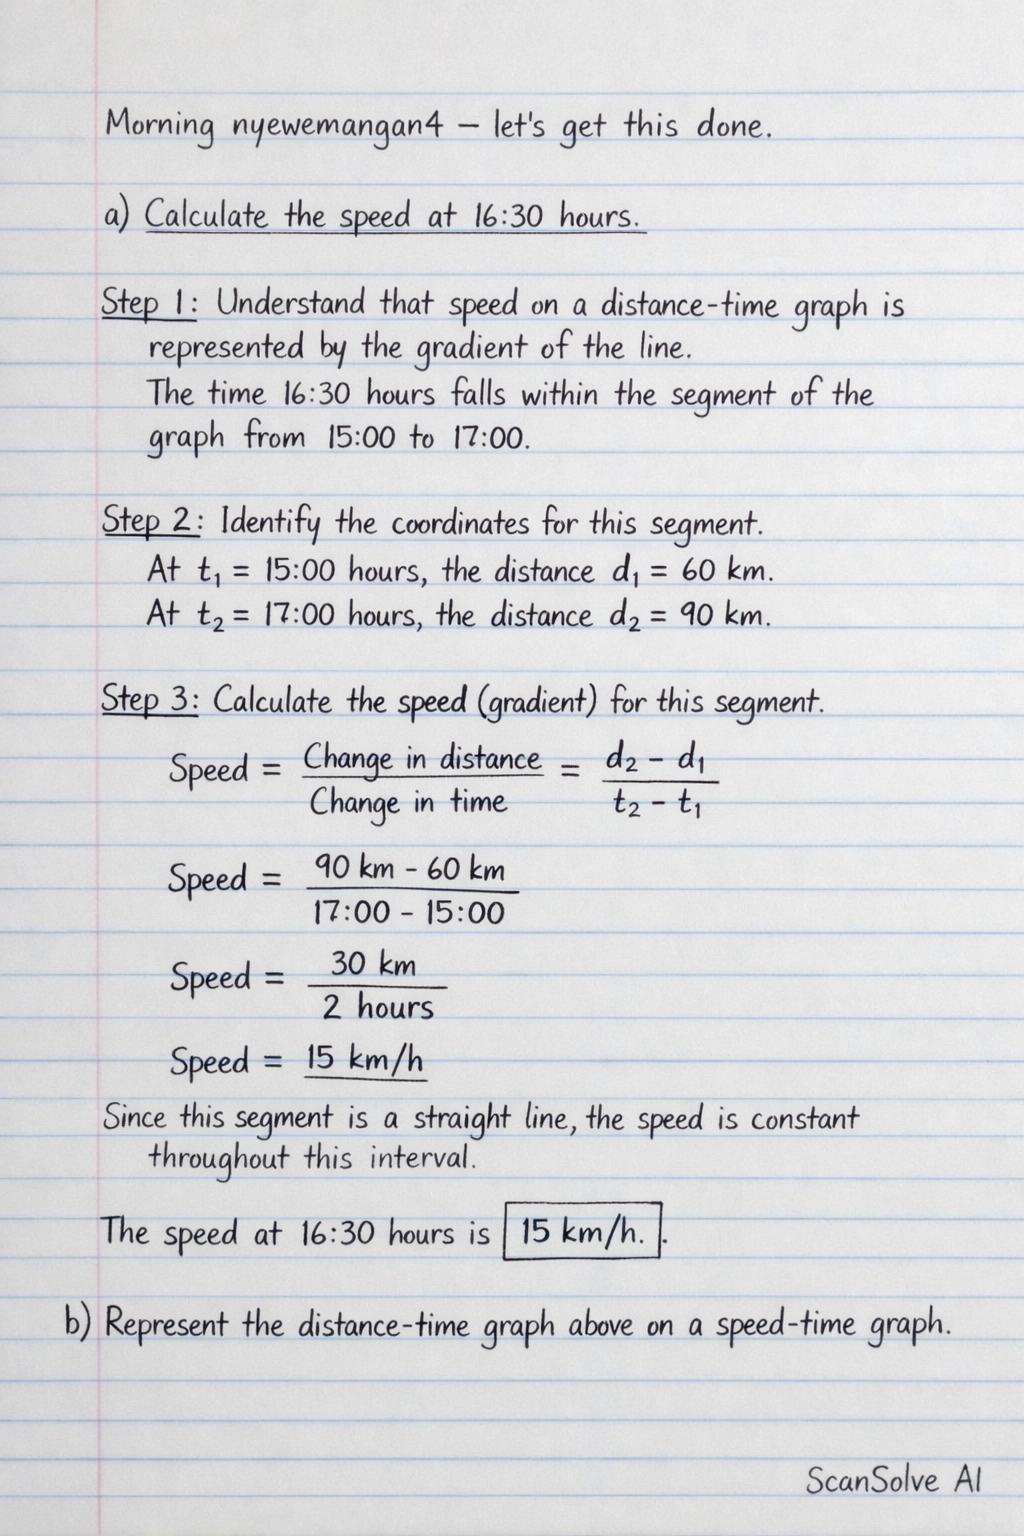 Morning nyewemangan4 – let's get this done.
a) Calculate the speed at 16:30 hours.
Step 1: Understand that speed on a distance-time graph is
represented by the gradient of the line.
The time 16:30 hours falls within the segment of the
graph from 15:00 to 17:00.
Step 2: Identify the coordinates for this segment.
At t₁ = 15:00 hours, the distance d₁ = 60 km.
At t₂ = 17:00 hours, the distance d₂ = 90 km.
Step 3: Calculate the speed (gradient) for this segment.
Speed = Change in distance / Change in time = d₂ - d₁ / t₂ - t₁
Speed = 90 km - 60 km / 17:00 - 15:00
Speed = 30 km / 2 hours
Speed = 15 km/h
Since this segment is a straight line, the speed is constant
throughout this interval.
The speed at 16:30 hours is 15 km/h..
b) Represent the distance-time graph above on a speed-time graph.
ScanSolve AI